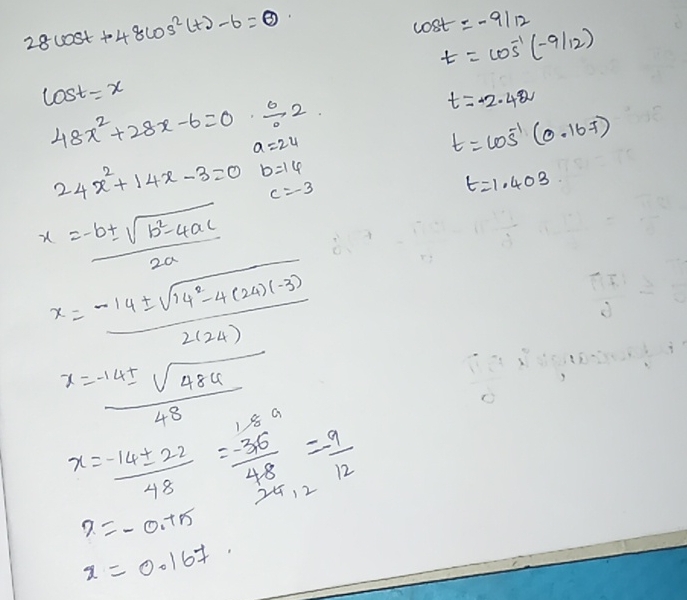 28cost + 48cos²(t) - 6 = 0.
cost = x
48x² + 28x - 6 = 0 ÷ 2.
24x² + 14x - 3 = 0
a = 24
b = 14
c = -3
x = -b ± √(b² - 4ac) / 2a
x = -14 ± √(14² - 4(24)(-3)) / 2(24)
x = -14 ± √484 / 48
x = -14 ± 22 / 48 = -36 / 48 = -9 / 12
18 9
24, 12
x = -0.75
x = 0.167.
cost = -9/12
t = cos⁻¹(-9/12)
t = 2.42
t = cos⁻¹(0.167)
t = 1.403.